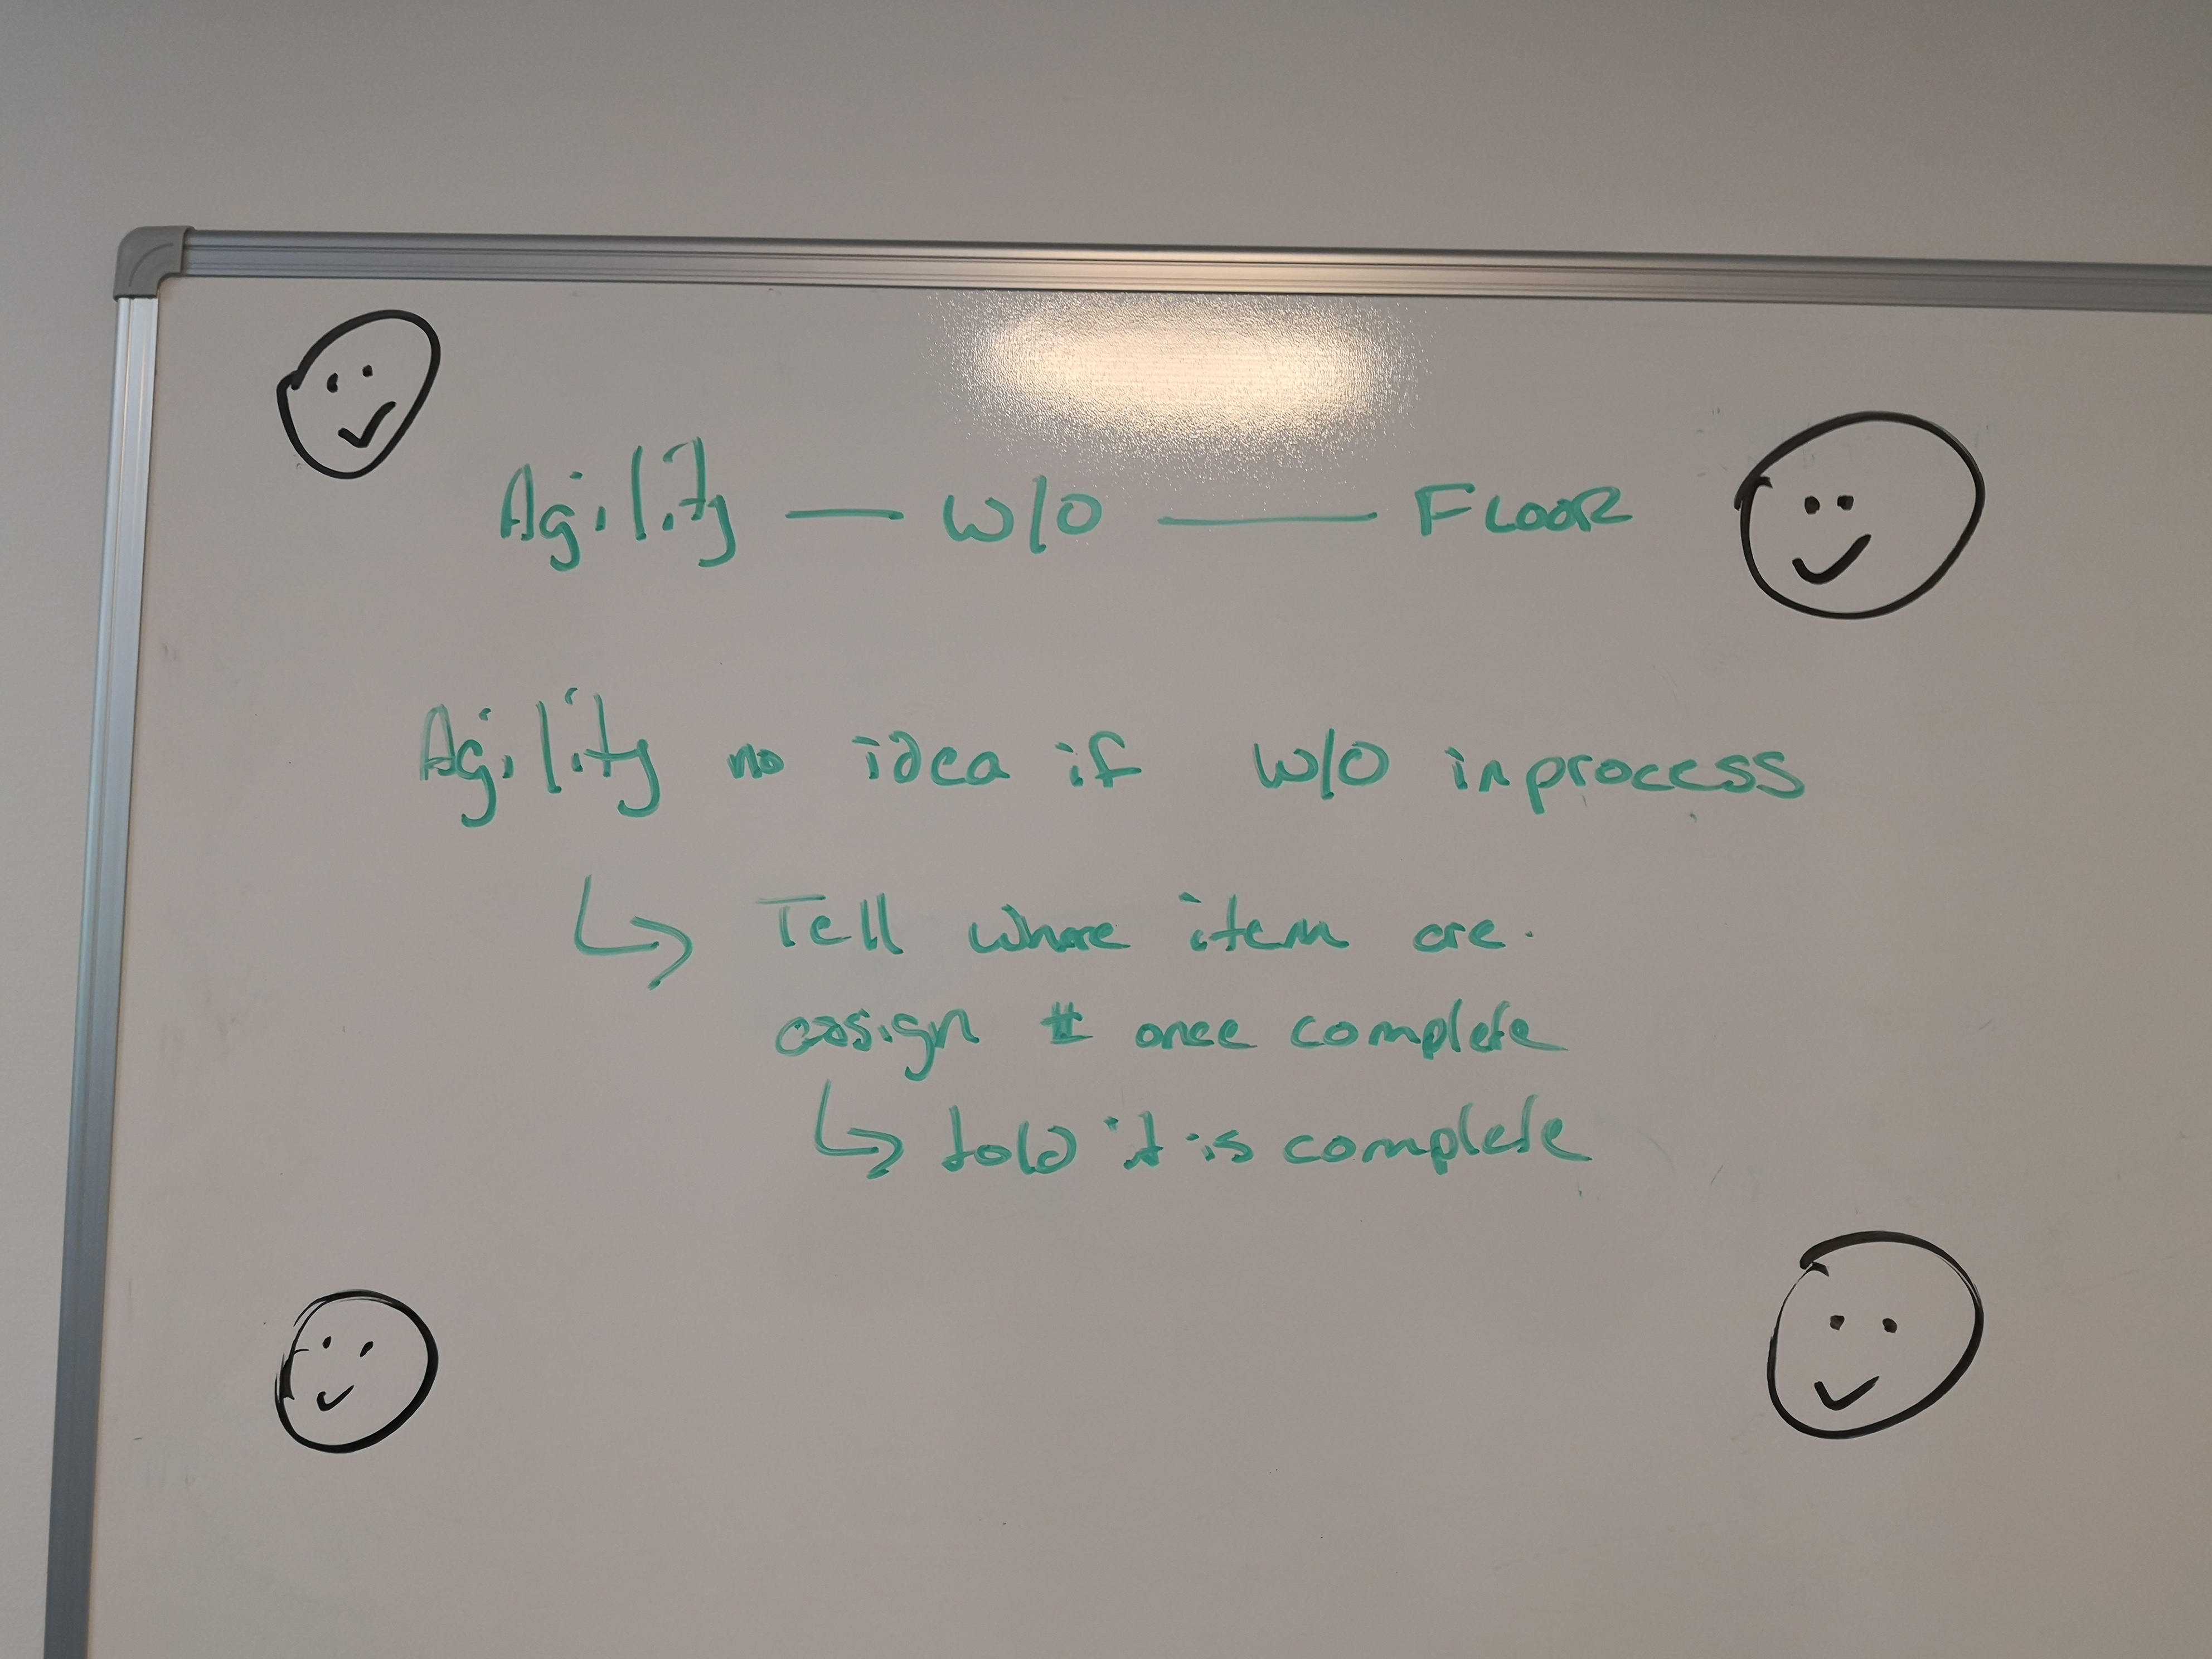 Agility — W/O — FLOOR
Agility no idea if W/O inprocess
↳ Tell where item are.
assign # once complete
↳ told it is complete